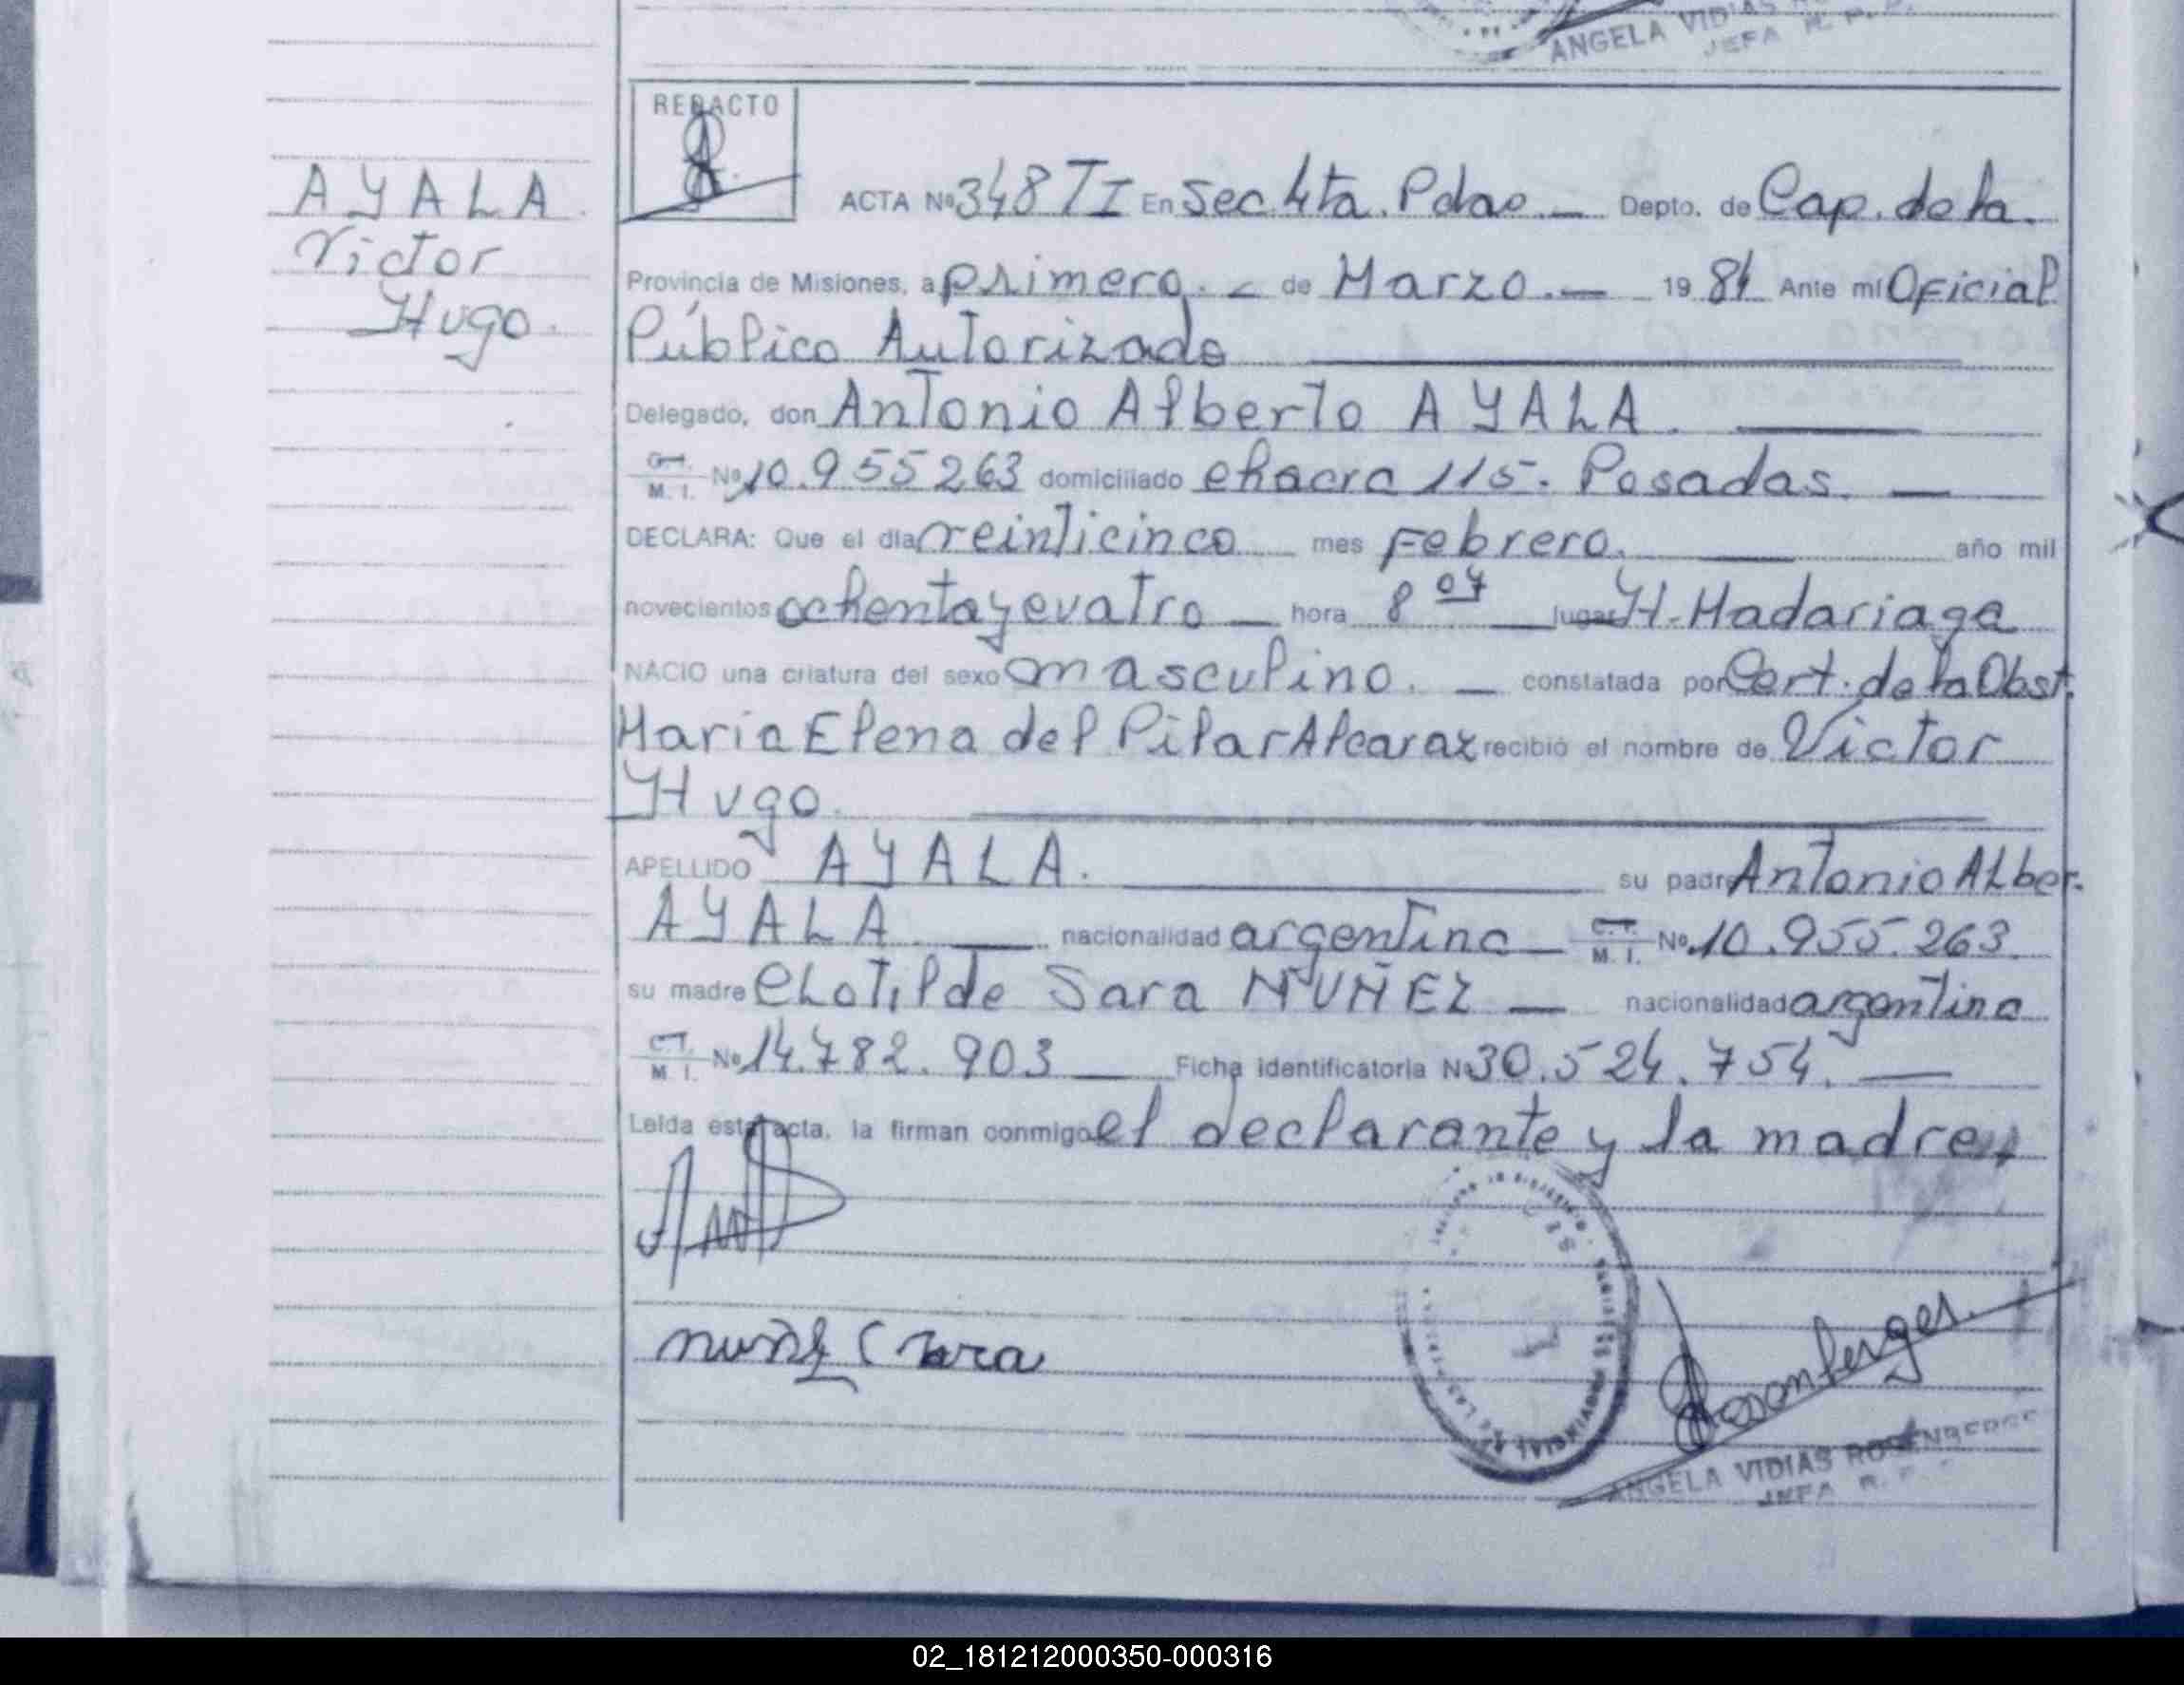 ANGELA VIDIAS
JEFA R. P.
REDACTO
AYALA
Victor
Hugo.
ACTA Nº 348 TI En Sec 4ta. Pdas — Depto. de Cap. de la.
Provincia de Misiones, a primero. — de Marzo. — 1984 Ante mí Oficial
Público Autorizado
Delegado, don Antonio Alberto AYALA.
M. I. Nº 10.955263 domiciliado chacra 115. Posadas. —
DECLARA: Que el día veinticinco mes Febrero. año mil
novecientos ochentaycuatro — hora 8 07 — lugar H. Madariaga
NACIO una criatura del sexo masculino. — constatada por Cert. de la Obst.
Maria Elena del Pilar Alcaraz recibió el nombre de Victor
Hugo.
APELLIDO AYALA. su padre Antonio Alber.
AYALA. — nacionalidad argentina — C.T. M. I. Nº 10.955.263.
su madre Clotilde Sara NUÑEZ — nacionalidad argentina
C.T. M. I. Nº 14.782.903 — Ficha identificatoria Nº 30.524.754. —
Leída esta acta, la firman conmigo el declarante y la madre
Rosenberger
ANGELA VIDIAS ROSENBERGER
JEFA R. P.
02_181212000350-000316